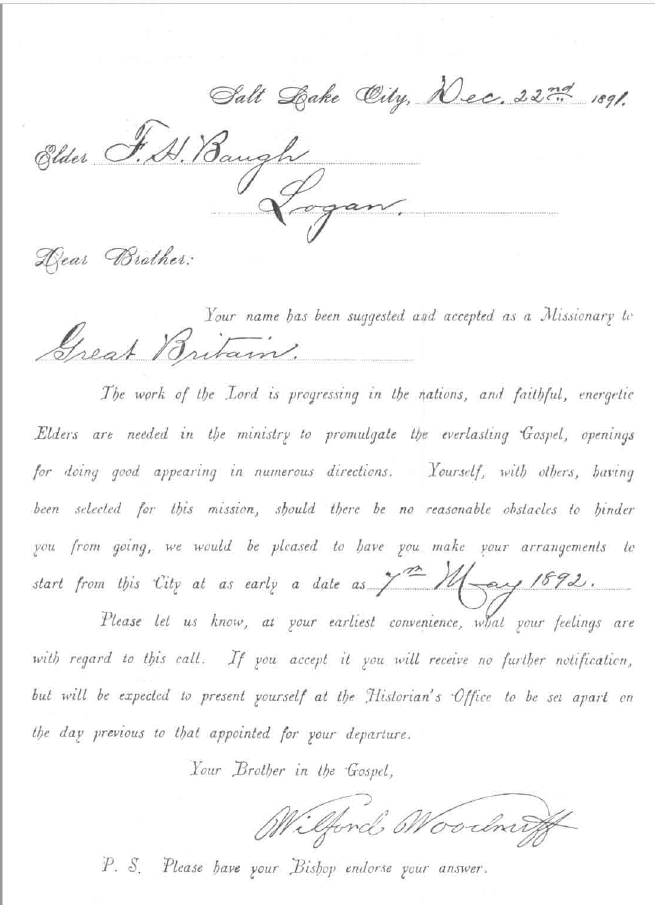 Salt Lake City, Dec. 22nd 1891.
Elder F. H. Baugh
Logan.
Dear Brother:
Your name has been suggested and accepted as a Missionary to
Great Britain.
The work of the Lord is progressing in the nations, and faithful, energetic
Elders are needed in the ministry to promulgate the everlasting Gospel, openings
for doing good appearing in numerous directions. Yourself, with others, having
been selected for this mission, should there be no reasonable obstacles to hinder
you from going, we would be pleased to have you make your arrangements to
start from this City at as early a date as 7th May 1892.
Please let us know, at your earliest convenience, what your feelings are
with regard to this call. If you accept it you will receive no further notification,
but will be expected to present yourself at the Historian's Office to be set apart on
the day previous to that appointed for your departure.
Your Brother in the Gospel,
Wilford Woodruff
P. S. Please have your Bishop endorse your answer.